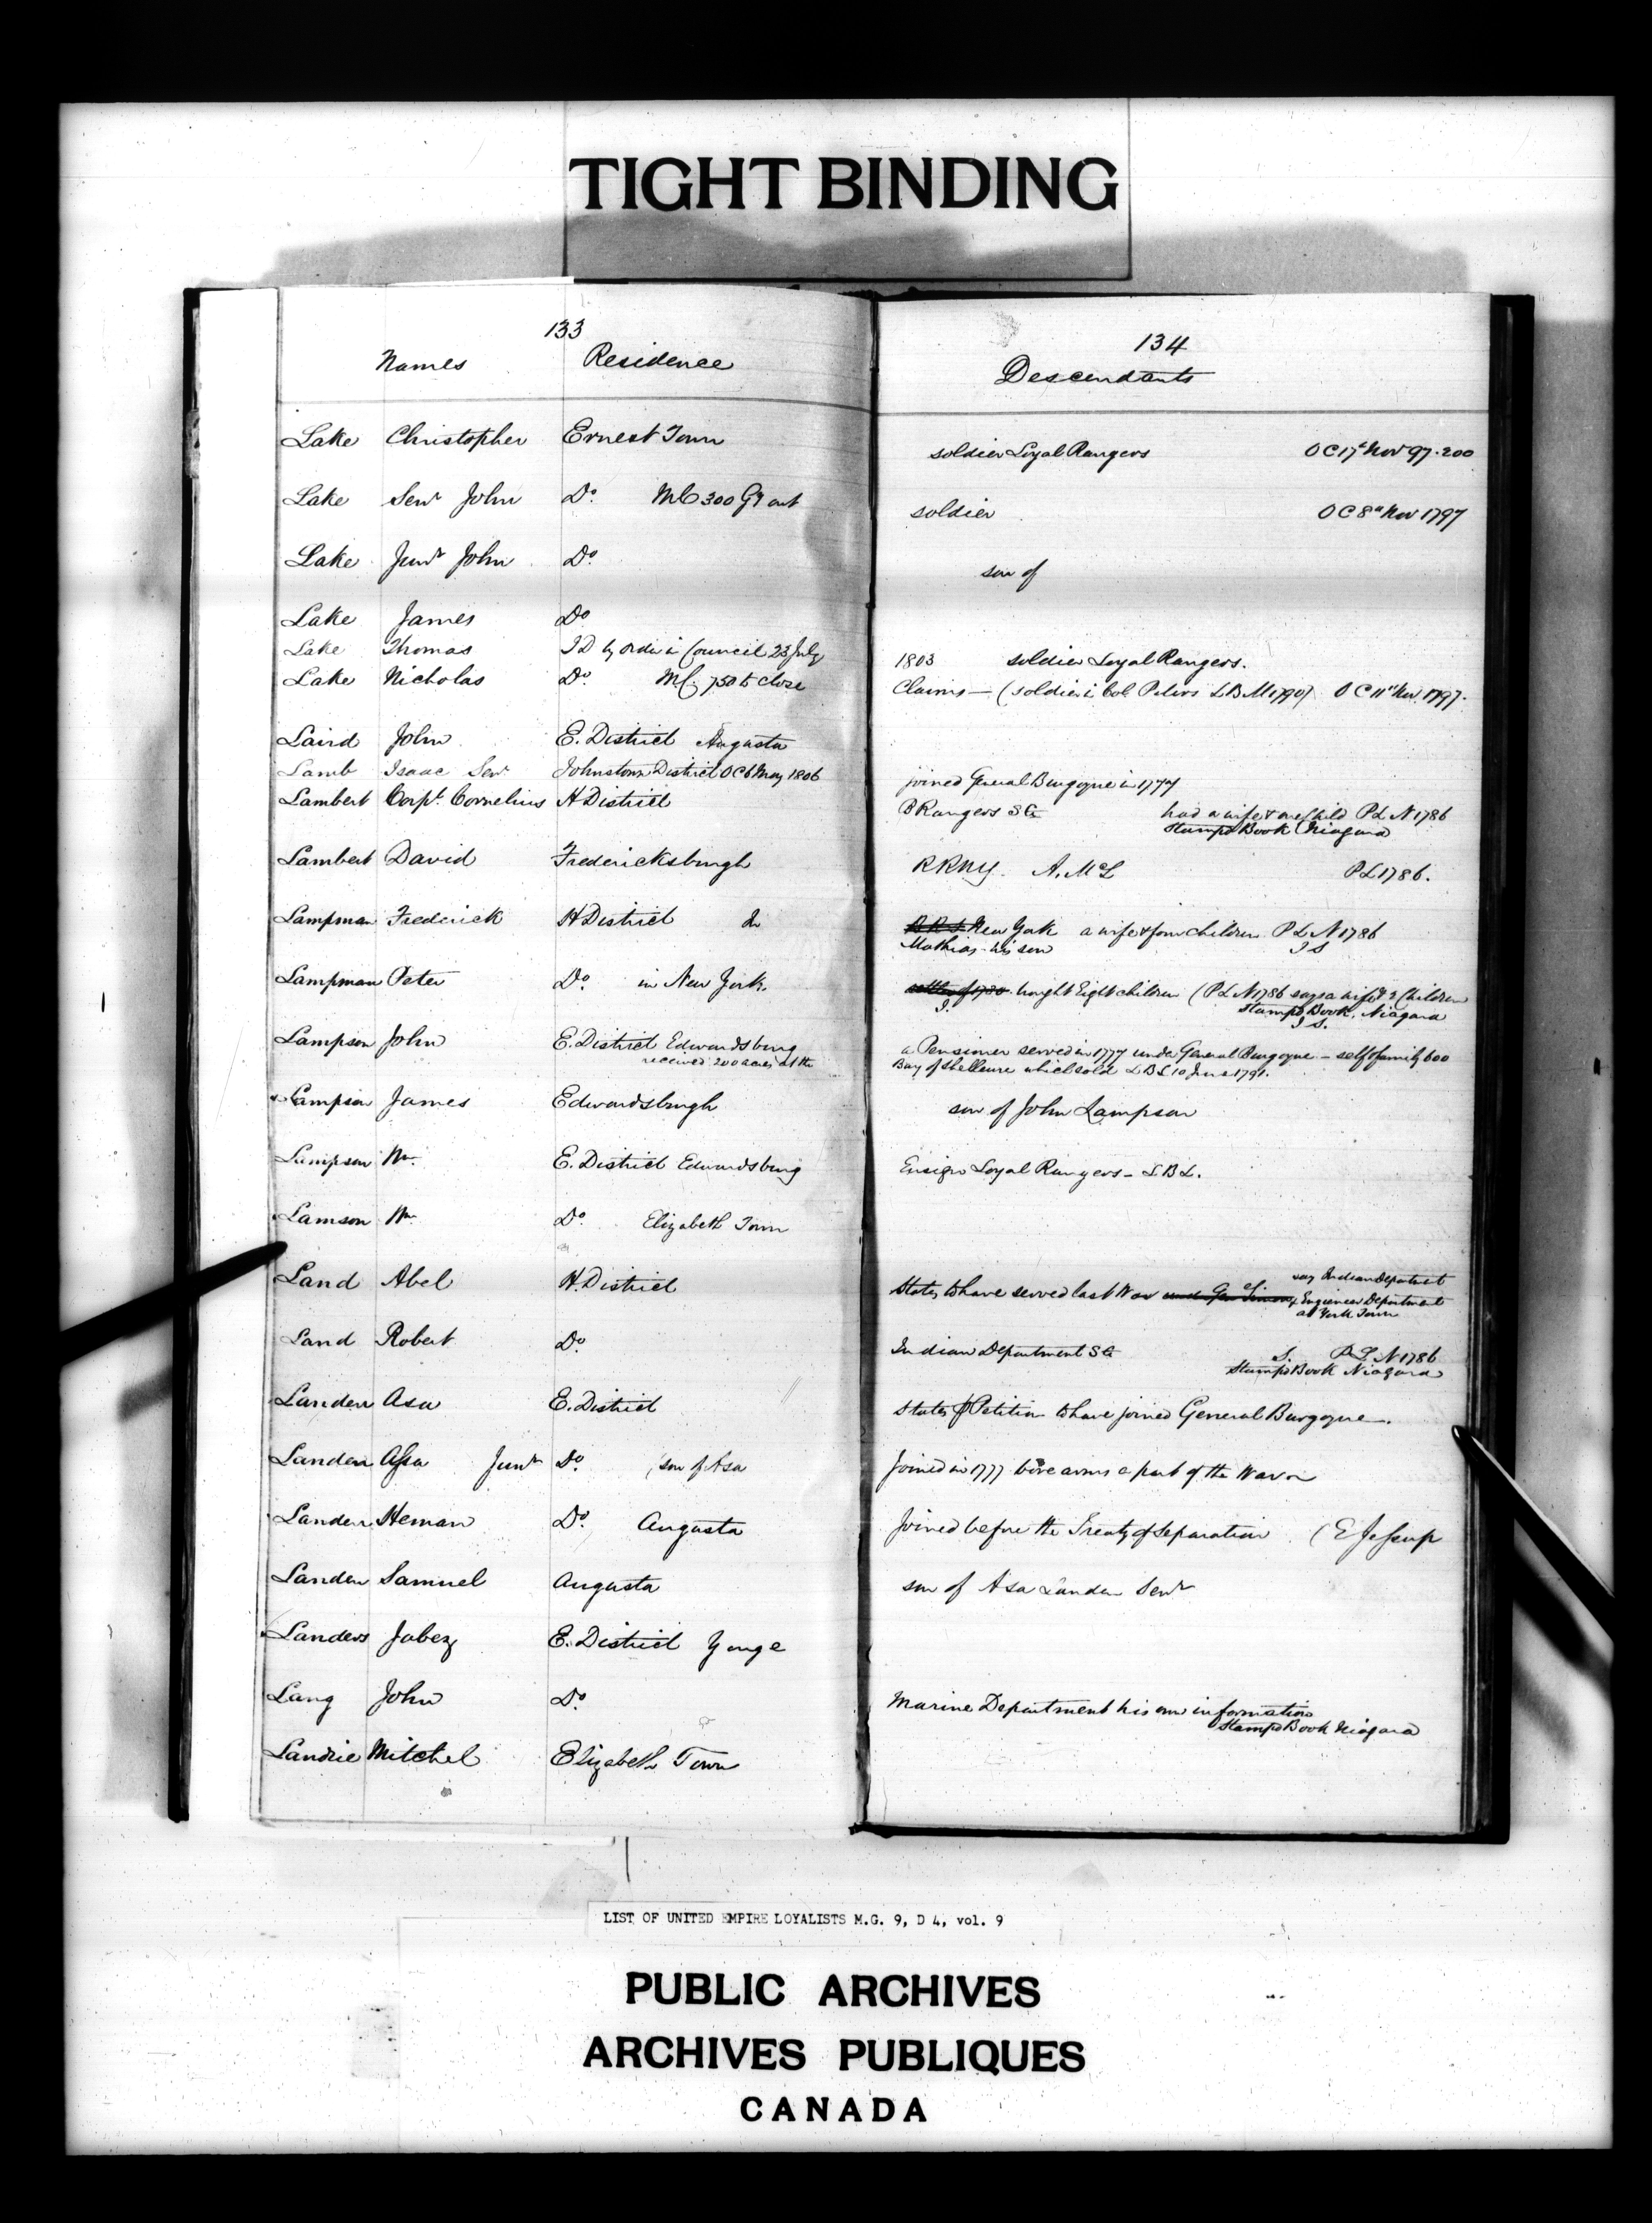 TIGHT BINDING
133
Names Residence
Lake Christopher Ernest Town
Lake Senr John Do. MC 300 Gt out
Lake Junr John Do.
Lake James Do
Lake Thomas ID by order in Council 23 July
Lake Nicholas Do. MC. 750 to close
Laird John E. District Augusta
Lamb Isaac Senr Johnstown District OC 6 May 1806
Lambert Corpl. Cornelius H District
Lambert David Fredericksburgh
Lampman Frederick H District In
Lampman Peter Do. in New York.
Lampson John E. District Edwardsburg
received 200 acres at the
Lampson James Edwardsburgh
Lampson Wm. E. District Edwardsburg
Lamson Wm Do. Elizabeth Town
Land Abel H. District
Land Robert Do.
Landen Asa E. District
Landen Assa Junr Do. son of Asa
Landen Heman Do. Augusta
Landen Samuel Augusta
Landers Jabez E. District Yonge
Lang John Do.
Landrie Mitchel Elizabeth Town
134
Descendants
soldier Loyal Rangers OC 17th Nov 97. 200
soldier OC 8th Nov 1797
son of
1803 soldier Loyal Rangers.
Claims — (soldier in Col. Peters LBM 1790) OC 11th Nov. 1797.
joined General Burgoyne in 1777
B Rangers SG had a wife & one child PL N 1786
Stamp'd Book Niagara
RRNY. A. McL PL 1786.
New York a wife & four children PL N 1786
Mathias his son I S
bought Eight children (PL N 1786 says a wife & 2 Children
I. Stamp'd Book, Niagara
I S.
a Pensioner served in 1777 under General Burgoyne — self & family 600
Bay of which sold LBL 10 June 1791.
son of John Lampson
Ensign Loyal Rangers — LBL.
say Indian Department
States to have served last War & Engineer Department
at York Town
Indian Department SG S. PL N 1786
Stamp'd Book Niagara
States p Petition to have joined General Burgoyne —.
Joined in 1777 bore arms a part of the War
Joined before the Treaty of Separation (E Jessup
son of Asa Landen Senr
Marine Department his own information
Stamp'd Book Niagara
LIST OF UNITED EMPIRE LOYALISTS M.G. 9, D 4, vol. 9
PUBLIC ARCHIVES
ARCHIVES PUBLIQUES
CANADA